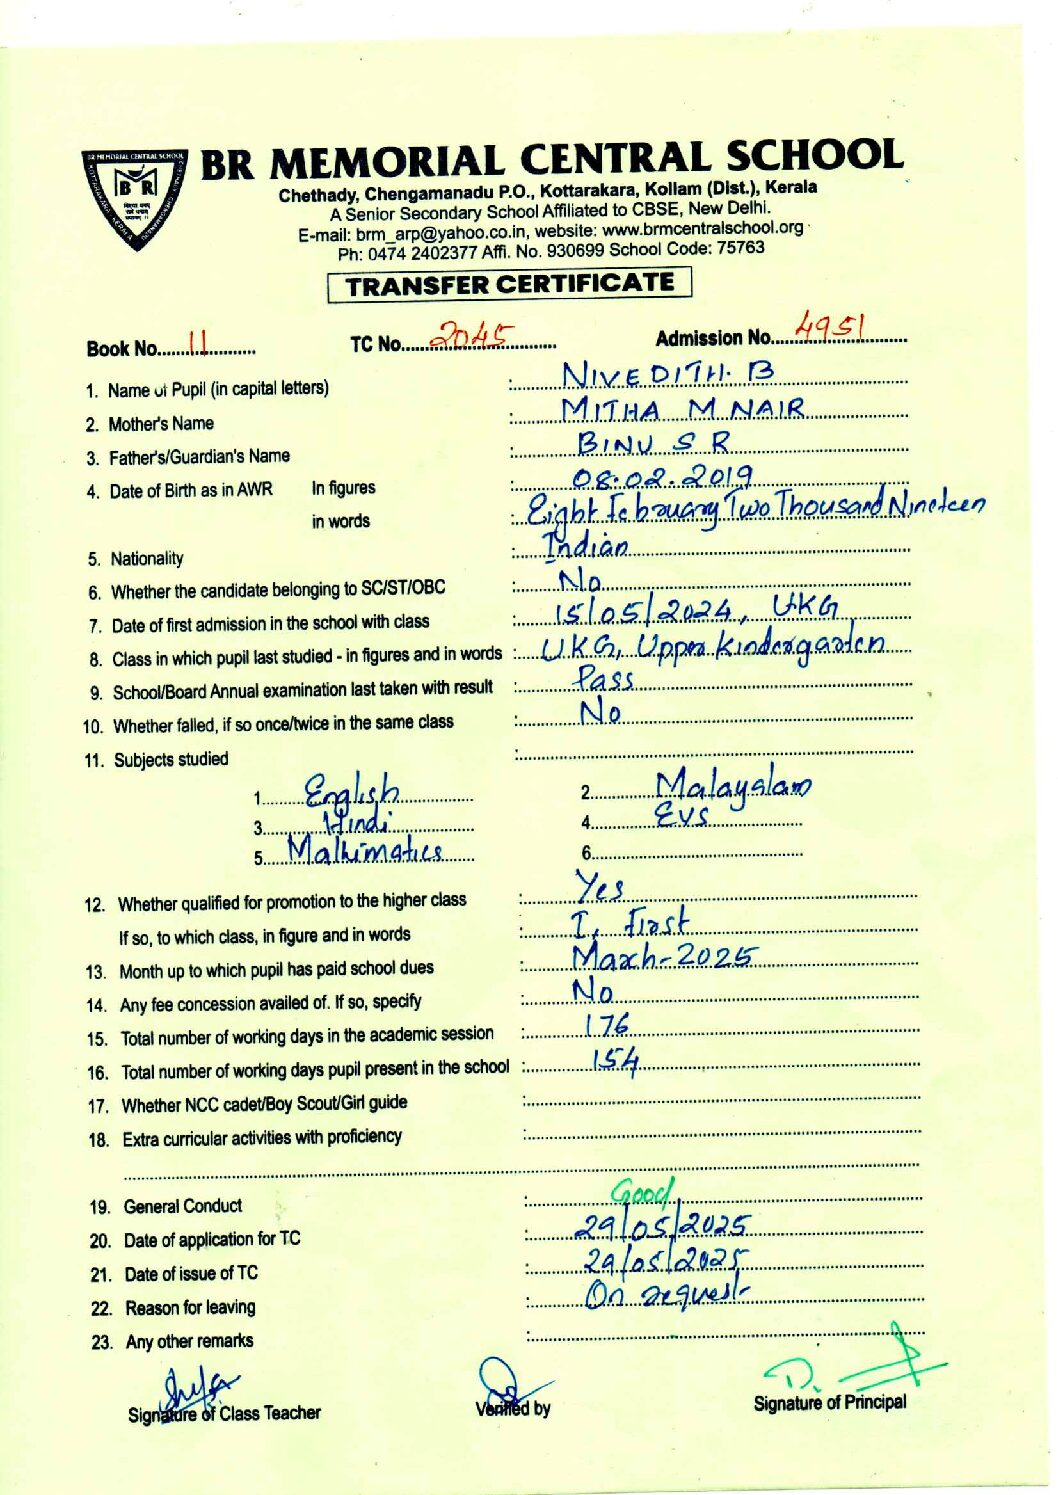 BR MEMORIAL CENTRAL SCHOOL
BR MEMORIAL CENTRAL SCHOOL
Chethady, Chengamanadu P.O., Kottarakara, Kollam (Dist.), Kerala
A Senior Secondary School Affiliated to CBSE, New Delhi.
E-mail: brm_arp@yahoo.co.in, website: www.brmcentralschool.org
Ph: 0474 2402377 Affi. No. 930699 School Code: 75763
TRANSFER CERTIFICATE
Book No. 11 TC No. 2045 Admission No. 4951
1. Name of Pupil (in capital letters) : NIVEDITH. B
2. Mother's Name : MITHA M NAIR
3. Father's/Guardian's Name : BINU S R
4. Date of Birth as in AWR In figures : 08.02.2019
in words : Eight February Two Thousand Nineteen
5. Nationality : Indian
6. Whether the candidate belonging to SC/ST/OBC : No
7. Date of first admission in the school with class : 15/05/2024, UKG
8. Class in which pupil last studied - in figures and in words : UKG, Upper Kindergarten
9. School/Board Annual examination last taken with result : Pass
10. Whether falled, if so once/twice in the same class : No
11. Subjects studied :
1. English 2. Malayalam
3. Hindi 4. EVS
5. Mathimatics 6.
12. Whether qualified for promotion to the higher class : Yes
If so, to which class, in figure and in words : I, First
13. Month up to which pupil has paid school dues : March-2025
14. Any fee concession availed of. If so, specify : No
15. Total number of working days in the academic session : 176
16. Total number of working days pupil present in the school : 154
17. Whether NCC cadet/Boy Scout/Girl guide :
18. Extra curricular activities with proficiency :
19. General Conduct : Good
20. Date of application for TC : 29/05/2025
21. Date of issue of TC : 29/05/2025
22. Reason for leaving : On request
23. Any other remarks :
Signature of Class Teacher Verified by Signature of Principal